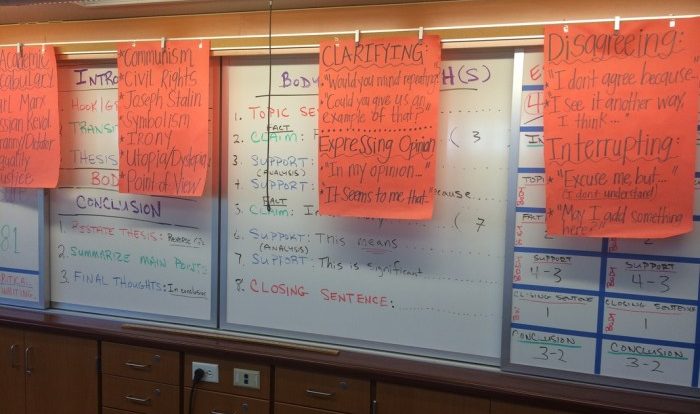 Academic
Karl Marx
Communism
*Civil Rights
*Joseph Stalin
*Symbolism
*IRONY
*Utopia/Dystopia
*Point of View
CLARIFYING:
"Would you mind repeating
"Could you give us an
example of that?"
Expressing Opinion
*"In my opinion..."
*"It seems to me that
Disagreeing:
*"I don't agree because
*"I see it another way.
I think..."
Interrupting:
*"Excuse me but..."
(I don't understand)
*"May I add something
here?"
INTRO
THESIS
BOD
CONCLUSION
1. RESTATE THESIS:
2. SUMMARIZE MAIN POINTS
3. FINAL THOUGHTS: In conclusion
81
CRITICAL
WRITING
BODY
H(S)
1. TOPIC SE
FACT
2. CLAIM:
( 3
3. SUPPORT:
(ANALYSIS)
4. SUPPORT:
because
FACT
5. CLAIM: In
( 7
6. SUPPORT: This means
(ANALYSIS)
7. SUPPORT: This is significant
8. CLOSING SENTENCE:
SUPPORT
4-3
CLOSING SENTENCE
1
CONCLUSION
3-2
SUPPORT
4-3
CLOSING SENTENCE
1
CONCLUSION
3-2